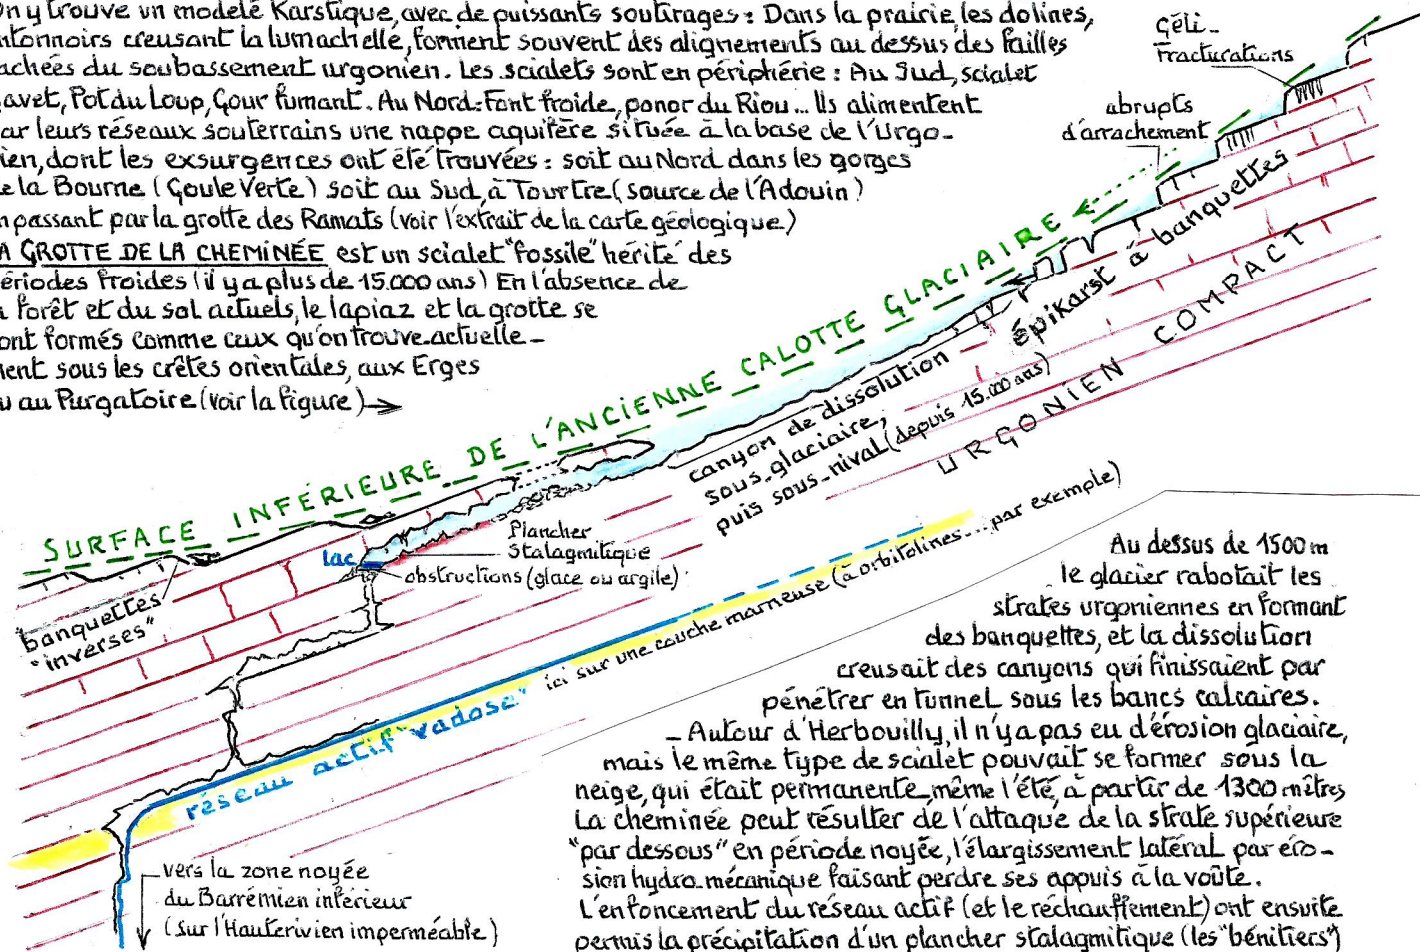 On y trouve un modelé Karstique, avec de puissants soutirages : Dans la prairie, les dolines,
ntonnoirs creusant la lumachelle, forment souvent des alignements au dessus des failles
achées du soubassement urgonien. Les scialets sont en périphérie : Au Sud, scialet
avet, Pot du Loup, Gour fumant. Au Nord : Font froide, ponor du Riou... Ils alimentent
ar leurs réseaux souterrains une nappe aquifère située à la base de l'Urgo-
ien, dont les exsurgences ont été trouvées : soit au Nord dans les gorges
e la Bourne (Goule Verte) soit au Sud, à Tourtre (source de l'Adouin)
n passant par la grotte des Ramats (voir l'extrait de la carte géologique)
A GROTTE DE LA CHEMINÉE est un scialet "fossile" hérité des
ériodes froides (il y a plus de 15.000 ans) En l'absence de
a forêt et du sol actuels, le lapiaz et la grotte se
ont formés comme ceux qu'on trouve actuelle-
ent sous les crêtes orientales, aux Erges
u au Purgatoire (voir la figure) →
Géli-
Fracturations
abrupts
d'arrachement
SURFACE INFÉRIEURE DE L'ANCIENNE CALOTTE GLACIAIRE
épikarst à banquettes
URGONIEN COMPACT
canyon de dissolution
sous-glaciaire,
puis sous-nival (depuis 15.000 ans)
lac
Plancher
Stalagmitique
obstructions (glace ou argile)
banquettes
"inverses"
réseau actif "vadose" ici sur une couche marneuse (à orbitolines... par exemple)
vers la zone noyée
du Barrémien inférieur
(sur l'Hauterivien imperméable)
Au dessus de 1500 m
le glacier rabotait les
strates urgoniennes en formant
des banquettes, et la dissolution
creusait des canyons qui finissaient par
pénétrer en tunnel sous les bancs calcaires.
- Autour d'Herbouilly, il n'y a pas eu d'érosion glaciaire,
mais le même type de scialet pouvait se former sous la
neige, qui était permanente, même l'été, à partir de 1300 mètres
La cheminée peut résulter de l'attaque de la strate supérieure
"par dessous" en période noyée, l'élargissement latéral par éro-
sion hydro-mécanique faisant perdre ses appuis à la voûte.
L'enfoncement du réseau actif (et le réchauffement) ont ensuite
permis la précipitation d'un plancher stalagmitique (les "bénitiers")